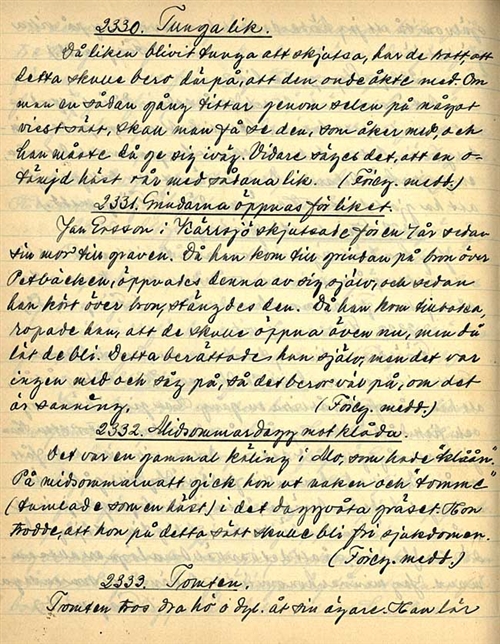 2330. Tunga lik.
Då liken blivit tunga att skjutsa, har de trott att
detta skulle bero därpå, att den onde åkte med. Om
man en sådan gång tittar genom selen på något
visst sätt, skall man få se den, som åker med, och
han måste då ge sig iväg. Vidare säges det, att en o-
tämjd häst rår med sådana lik. (Föreg. medd.)
2331. Grindarna öppnas för liket.
Jan Ersson i Kärrsjö skjutsade för en 7 år sedan
sin mor till graven. Då han kom till grindan på bron över
Petbäcken, öppnades denna av sig själv, och sedan
han kört över bron, stängdes den. Då han kom tillbaka,
ropade han, att de skulle öppna även nu, men då
lät de bli. Detta berättades han själv, men det var
ingen med och såg på, så det beror väl på, om det
är sanning. (Föreg. medd.)
2332. Midsommardagg mot klåda.
Det var en gammal käling i Mo, som hade "klåån".
På midsommarnatt gick hon ut naken och
(tumlade som en häst) i det daggvåta gräset. Hon
trodde, att hon på detta sätt skulle bli fri sjukdomen.
(Föreg. medd.)
2333. Tomten.
Tomten tros dra hö o dyl. åt sin ägare. Han lär